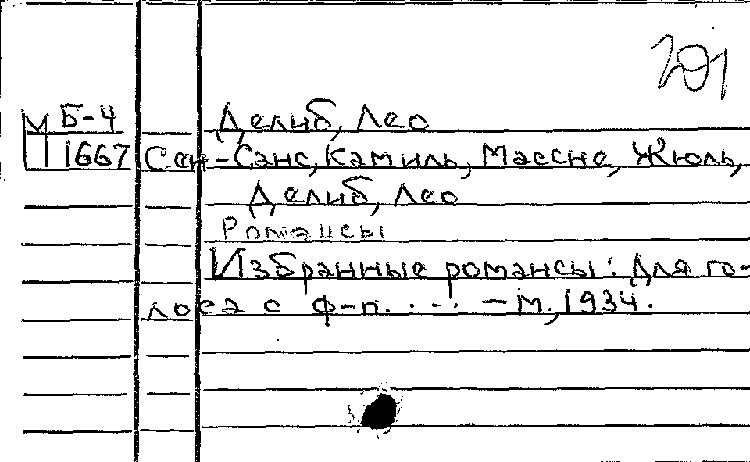 201
М Б-4 Делиб, Лео
1667 Сен-Санс, Камиль, Массне, Жюль,
Делиб, Лео
Романсы
Избранные романсы: Для го-
лоса с ф-п. ... — М., 1934.